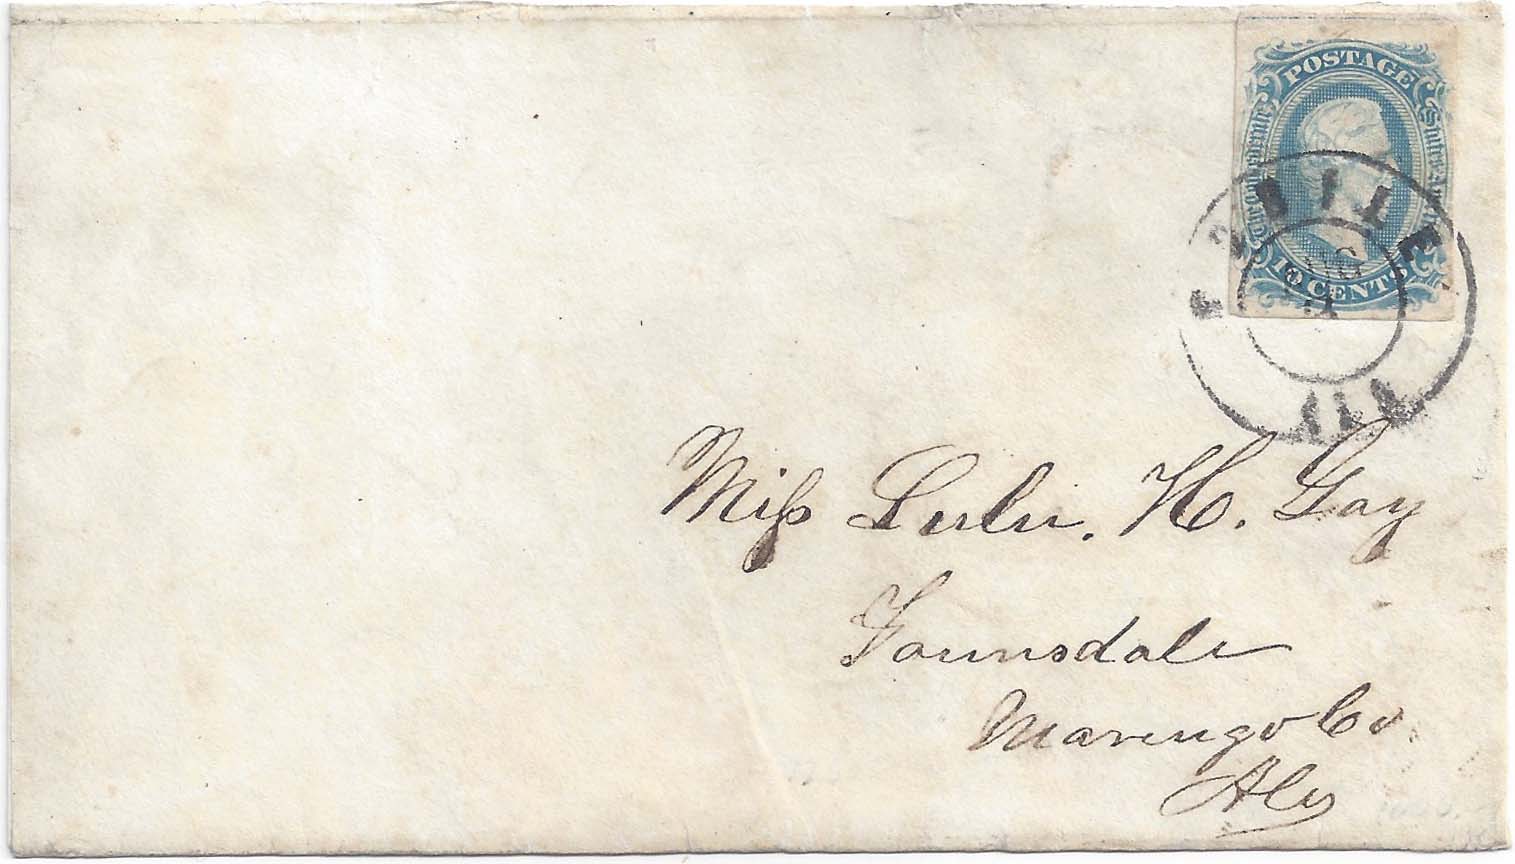 POSTAGE
The Confederate States of America
10 CENTS
MOBILE
AUG
ALA
Miss Lulu. H. Gay
Faunsdale
Marengo Co.
Ala